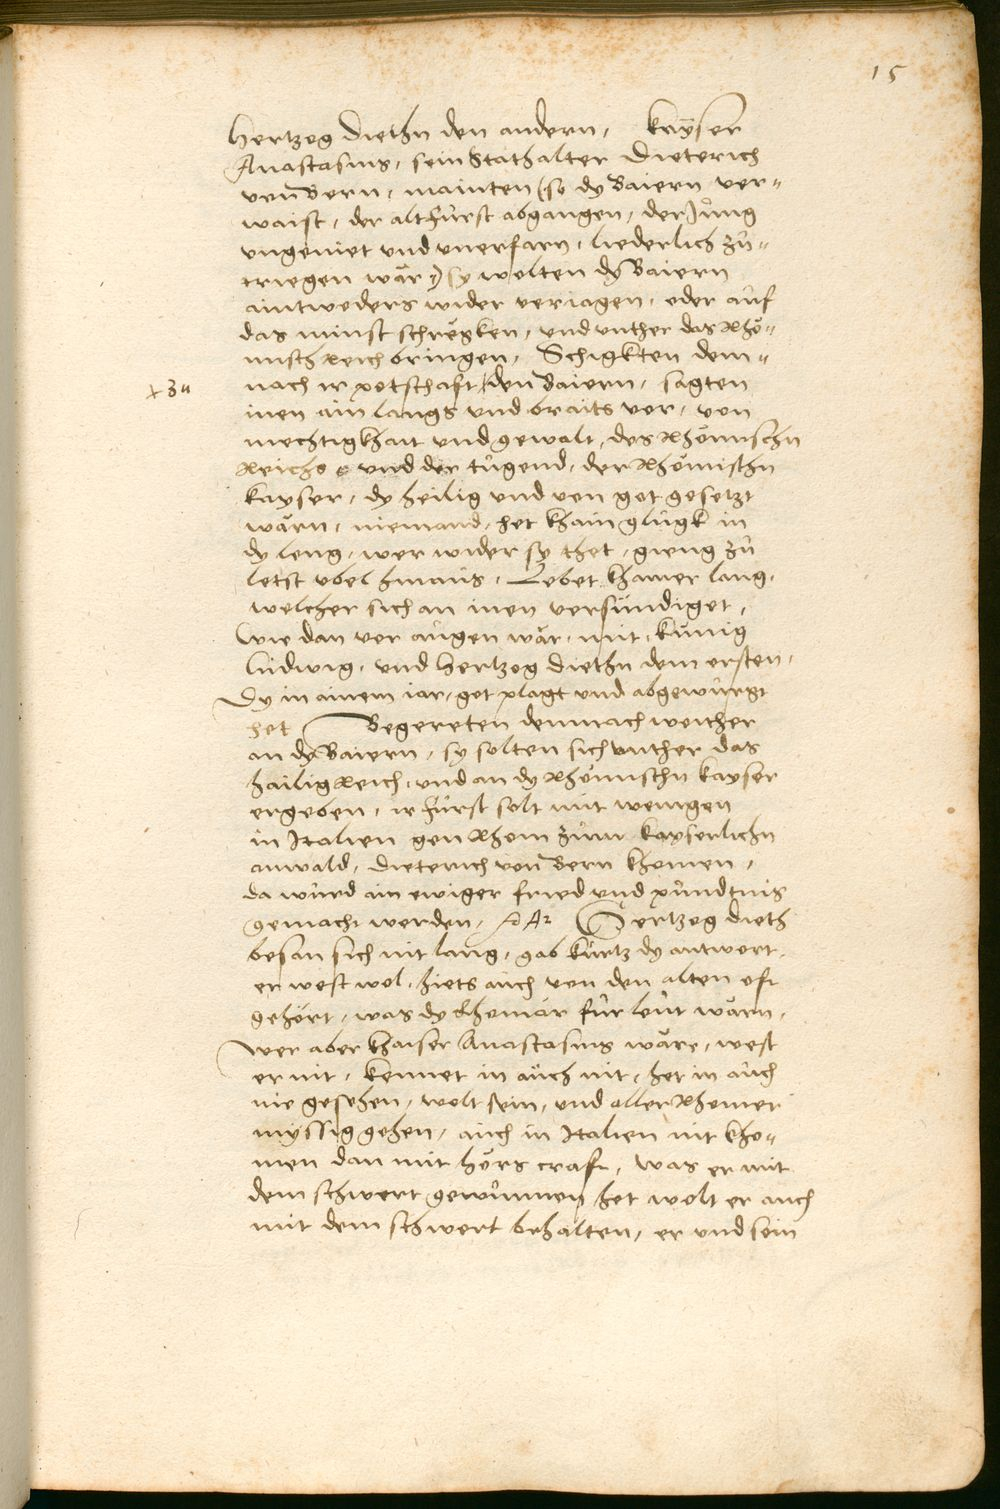 15
Hertzog Diethn den andern, kaÿser
Anastasius, sein Stathalter Dieterich
von Bern, mainten (so dy Baiern ver=
waist, der alt fürst abgangen, der Jůng
ungeniet und unerfarn, liederlich zů=
kriegen wär,) sy wolten dy Baiern
aintweders wider veriagen, oder aůf
das minst schreken, und unther das Rhö=
misch Reich bringen, Schigkten dem=
nach ir potschaft + den Baiern, sagten
+ zu
inen ain langs und braits vor, von
mechtigkhait und gewalt, des Rhömischn
Reichs und der tůgend, der Rhömischn
kayser, dy heilig und von got gesetzt
wärn, niemand, het khain glügk in
dy leng, wer wider sy thet, gieng zů
letst ubel hinaůs, Lebet khainer lang,
welcher sich an inen versündiget,
Wie dan vor aůgen wär, mit, künig
Lůdwig, und Hertzog Diethn dem ersten,
Dy in ainem iar, got plagt und abgewürgt
het Begereten demnach weither
an dy Baiern, sy solten sich unther das
hailig Reich, und an dy Rhömischn kayser
ergeben, ir fürst solt mit wenigen
in Italien gen Rhom zům kayserlichn
anwald, Dieterich von Bern khomen,
da wůrd ain ewiger frid und půndtnis
gemacht werden, Hertzog Dieth
besan sich nit lang, gab kůrtz dy antwort,
er west wol, hiets aůch von den alten oft
gehört, was dy Rhomär für leůt wärn,
Wer aber khaiser Anastasius wäre, west
er nit, kennet in aůch nit, het in aůch
nie gesehen, wolt sein, und aller Rhomer
myssig gehen, aůch in Italien nit kho=
men dan mit hörs craft, was er mit
dem schwert gewůnnen het wolt er auch
mit dem schwert behalten, er und sein